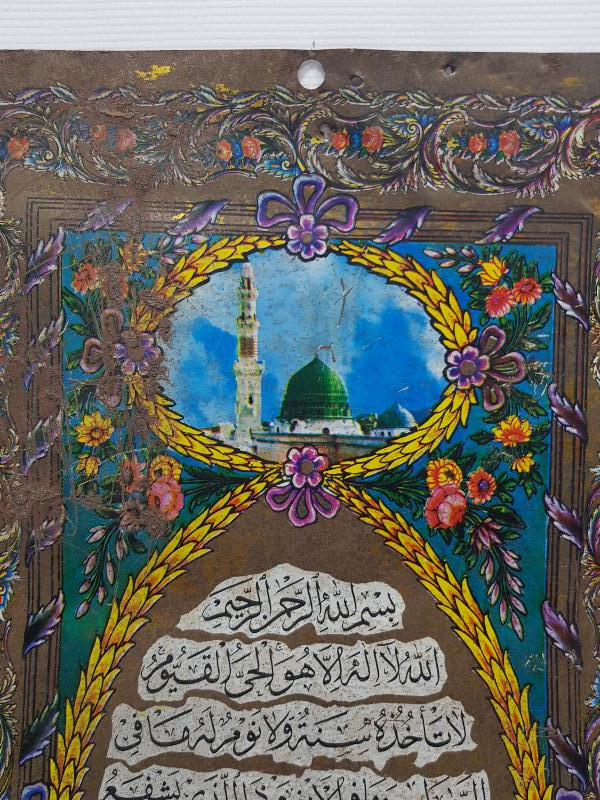 بِسْمِ اللَّهِ الرَّحْمَٰنِ الرَّحِيمِ
اللَّهُ لَا إِلَٰهَ إِلَّا هُوَ الْحَيُّ الْقَيُّومُ
لَا تَأْخُذُهُ سِنَةٌ وَلَا نَوْمٌ لَهُ مَا فِي
يَشْفَعُ